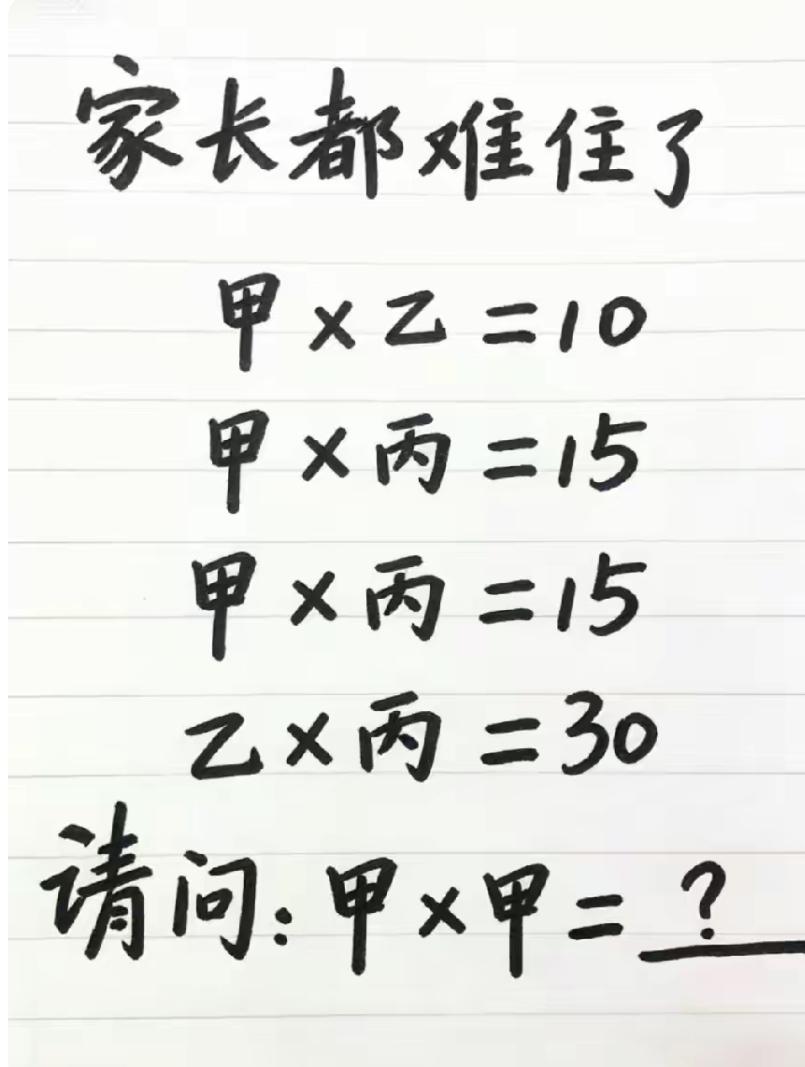 家长都难住了
甲×乙=10
甲×丙=15
甲×丙=15
乙×丙=30
请问:甲×甲=?